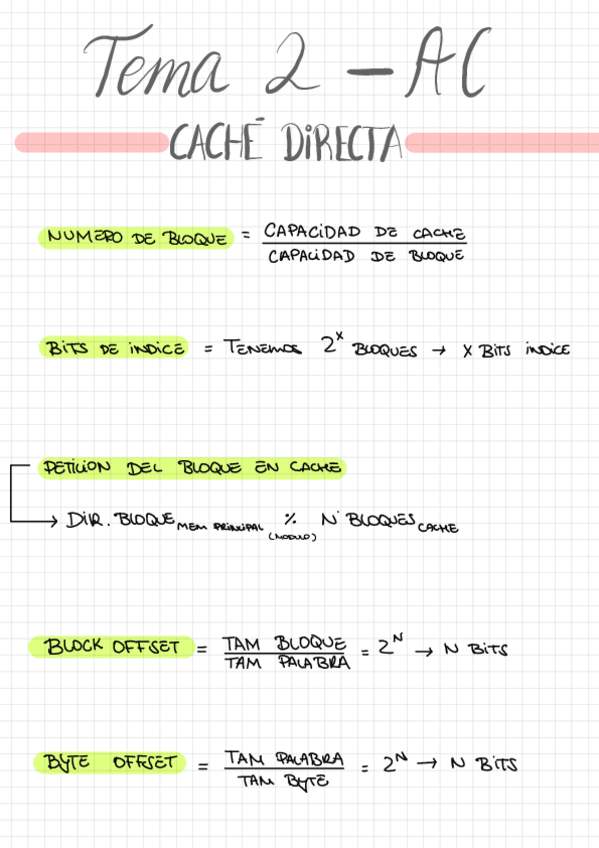 Tema 2 - AC
CACHÉ DIRECTA
NUMERO DE BLOQUE = CAPACIDAD DE CACHE
CAPACIDAD DE BLOQUE
BITS DE INDICE = TENEMOS 2^x BLOQUES → X BITS INDICE
PETICION DEL BLOQUE EN CACHE
→ DIR. BLOQUE MEM PRINCIPAL % Nº BLOQUES CACHE
(MODULO)
BLOCK OFFSET = TAM BLOQUE = 2^N → N BITS
TAM PALABRA
BYTE OFFSET = TAM PALABRA = 2^N → N BITS
TAM BYTE